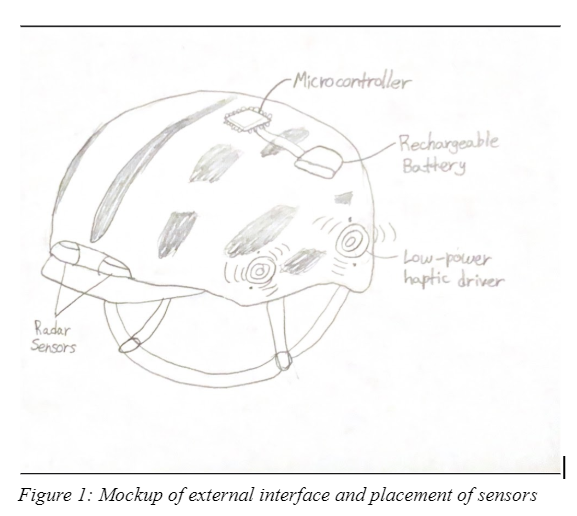 Microcontroller
Rechargeable
Battery
Low-power
haptic driver
Radar
Sensors
Figure 1: Mockup of external interface and placement of sensors